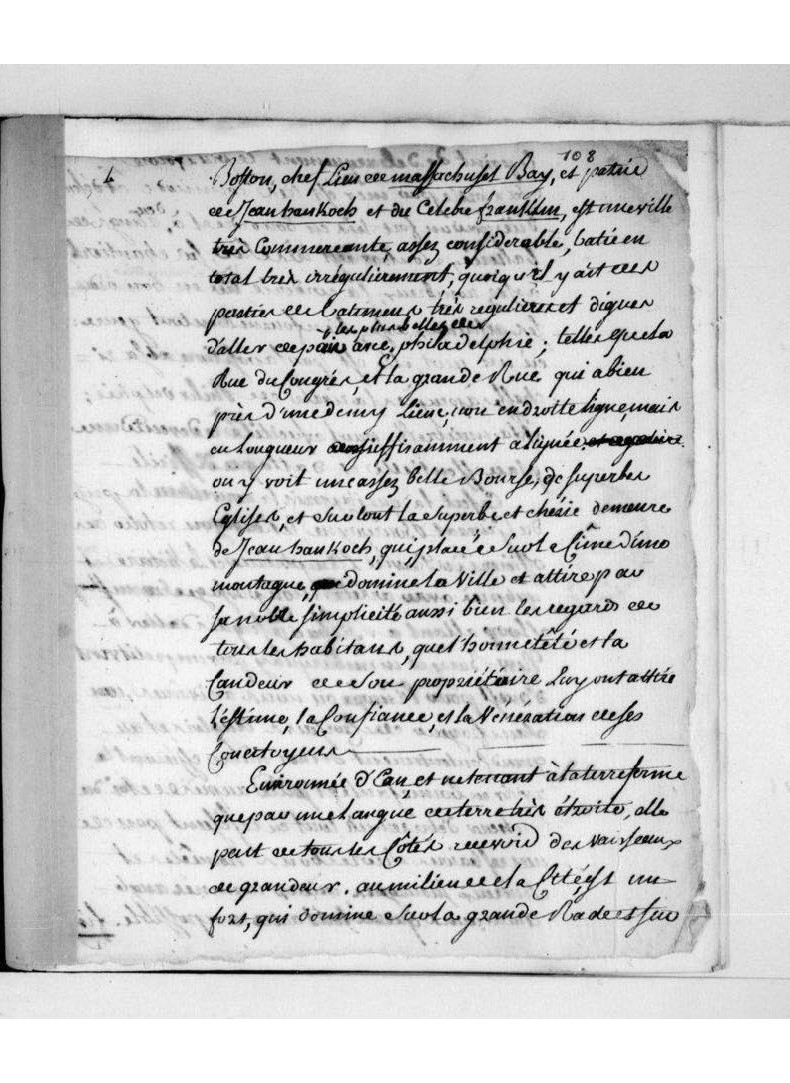 108
Boston, chef Lieu de massachuset Bay, et patrie
de Jean hankoch et du Celebre franklin, est une ville
très Commercante, assez considerable, batie en
total très irrégulierement, quoiqu'il y ait des
parties de batimens très regulieres et dignes
les plus belles de
d'aller de pair avec philadelphie; telles que la
Rue du Congrés, et la grande Rue qui a bien
près d'une demy Lieue, non en droite ligne, mais
en Longueur suffisamment alignée et reguliere.
on y voit une assez belle Bourse, de superbes
Eglises, et surtout la superbe et chérie demeure
de Jean hankoch, qui, placée sur le Cîme d'une
montagne, domine la Ville et attire par
sa noble simplicité aussi bien les regards de
tous les habitans, que l'honnêteté et la
Candeur de son propriétaire Luy ont attiré
l'estime, la Confiance, et la Vénération de ses
Concitoyens
Environnée d'Eau, et ne tenant à la terre ferme
que par une Langue de terre très étroite, elle
peut de tous les Côtés recevoir des vaisseaux
de grandeur. au milieu de la Cité est un
fort, qui domine sur la grande Rade et sur